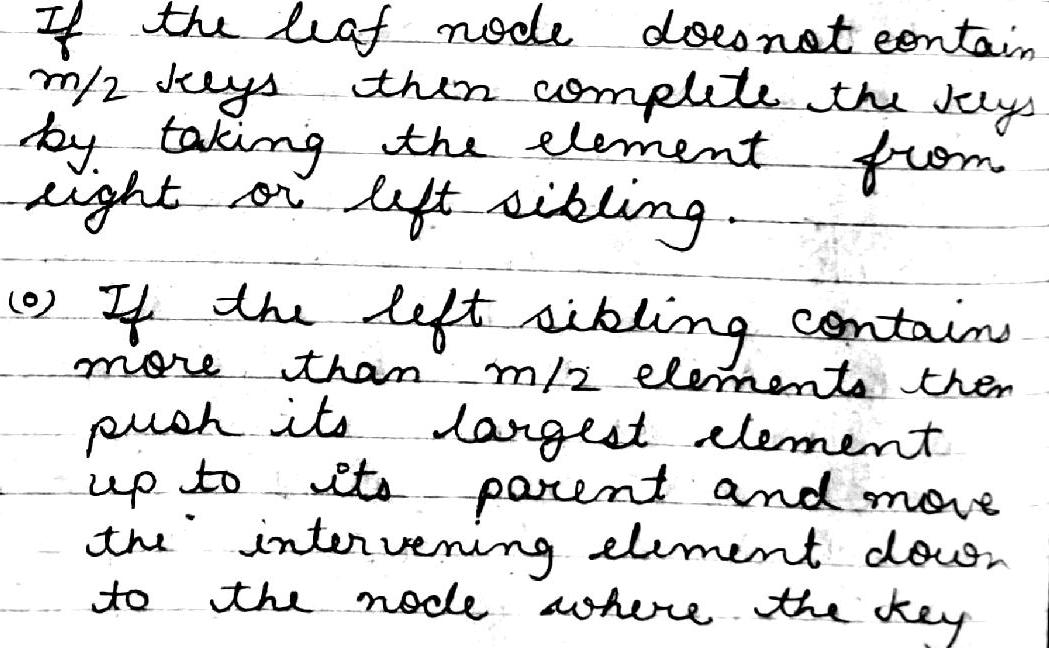 If the leaf node doesnot contain
m/2 keys then complete the keys
by taking the element from
right or left sibling.
(o) If the left sibling contains
more than m/2 elements then
push its largest element
up to its parent and move
the intervening element down
to the node where the key